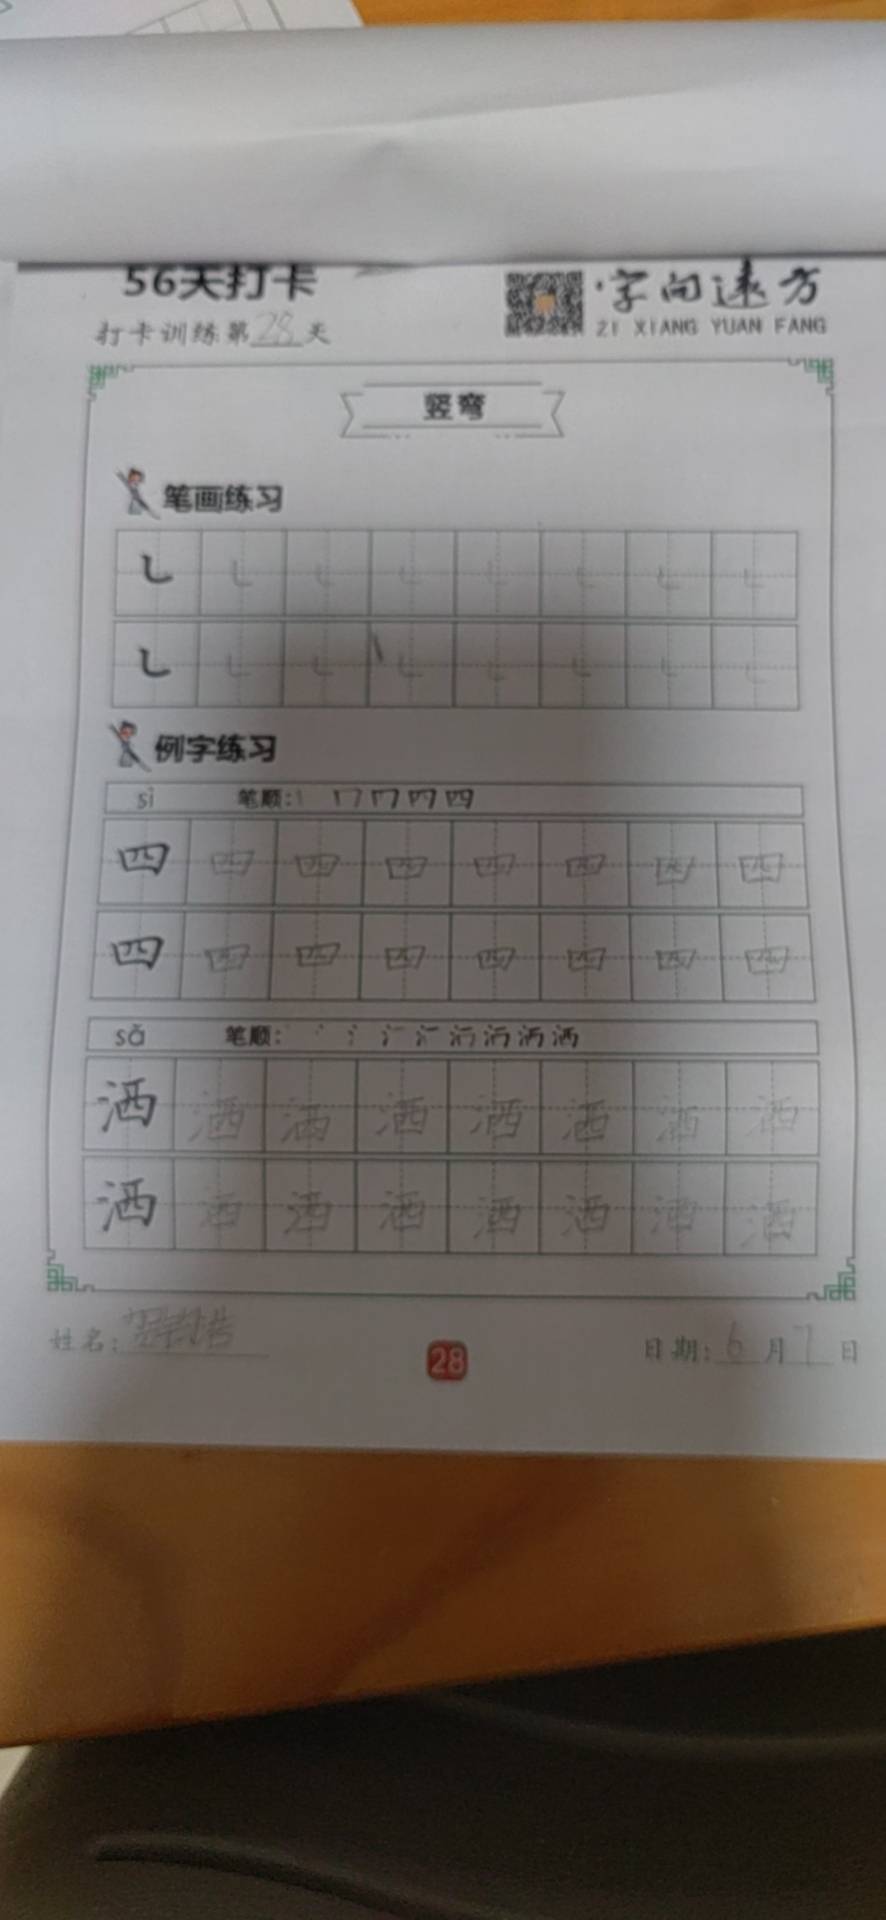 56天打卡
·字向远方
ZI XIANG YUAN FANG
打卡训练第28天
竖弯
笔画练习
例字练习
sì 笔顺:
四 四 四 四 四 四 四 四
四 四 四 四 四 四 四 四
sǎ 笔顺:
洒 洒 洒 洒 洒 洒 洒 洒
洒 洒 洒 洒 洒 洒 洒 洒
姓名:
28
日期:6月7日